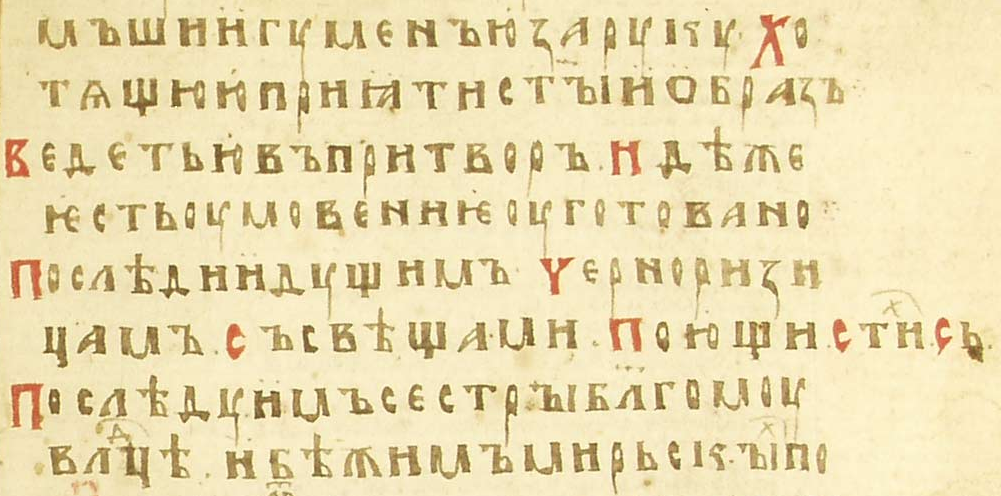 мъши игуменъ ю за руку. Хо
тѧщюю приꙗти с҃тъıи образъ
Ведеть ю въ притворъ. Идѣже
ѥсть оумовениѥ оуготовано
Послѣди идущимъ Черноризи
цамъ. Съ свѣщами. Поющи С҃тии Сь.
Послѣдунимъ сестръı бл҃гомоу
влⷣцѣ. и бѣжимъ мирьскъıⷯ по